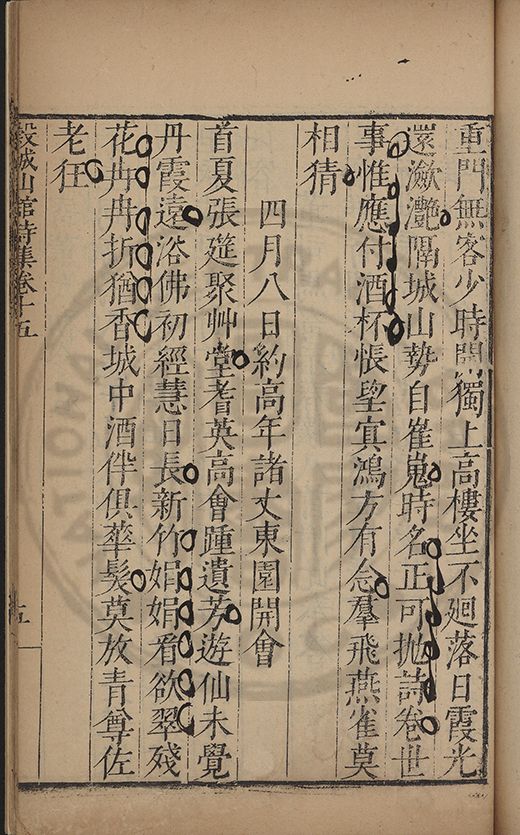 重門無客少時開獨上高樓坐不廻落日霞光
還瀲灧隔城山勢自崔嵬時名正可拋詩卷世
事惟應付酒杯悵望冥鴻方有念羣飛燕雀莫
相猜
四月八日約高年諸丈東園開會
首夏張筵聚艸堂耆英高會踵遺芳遊仙未覺
丹霞遠浴佛初經慧日長新竹娟娟看欲翠殘
花冉冉折猶香城中酒伴俱華髮莫放青尊佐
老狂
穀城山館詩集卷十五
五